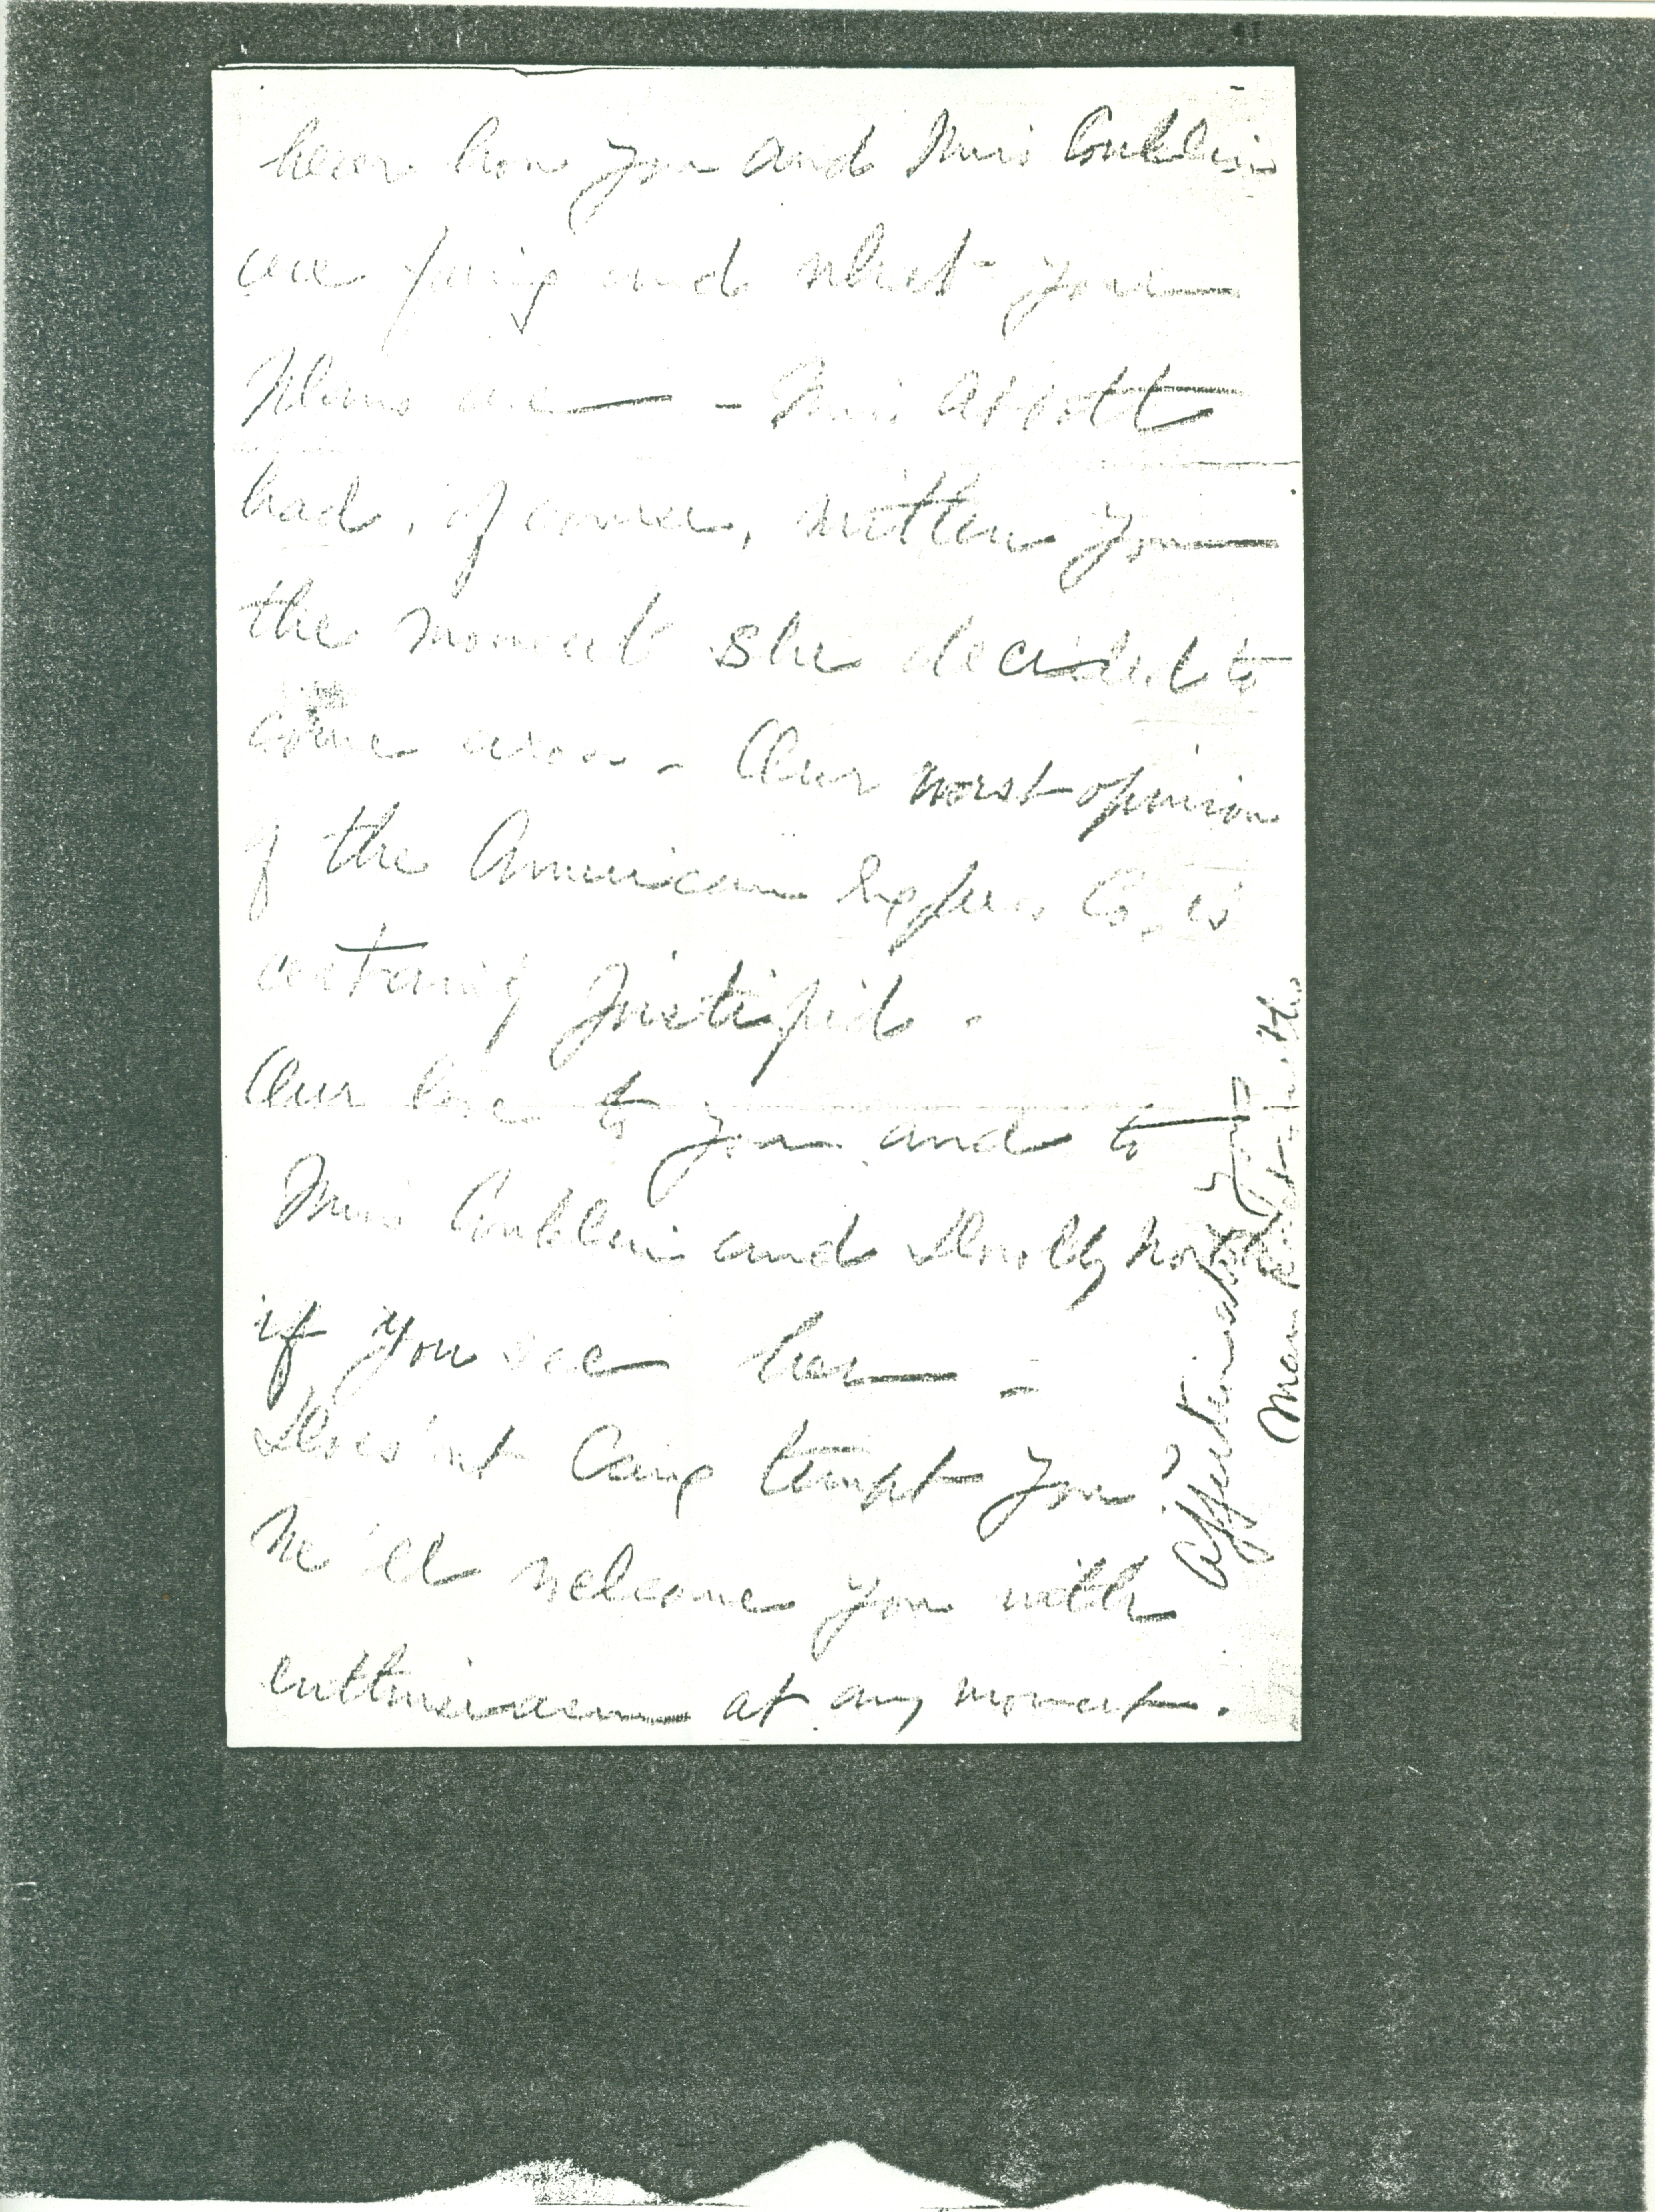 hear how you and Miss Conklin
are faring and what your
Plans are — - Miss Abbott
had, of course, written you
the moment she decided to
come across - Our worst opinion
of the American Express Co, is
certainly justified.
Our love to you and to
Miss Conklin and Dolly
if you see her — -
Does'nt Cang tempt you?
We'll welcome you with
enthusiasm at any moment.
Affectionately yours